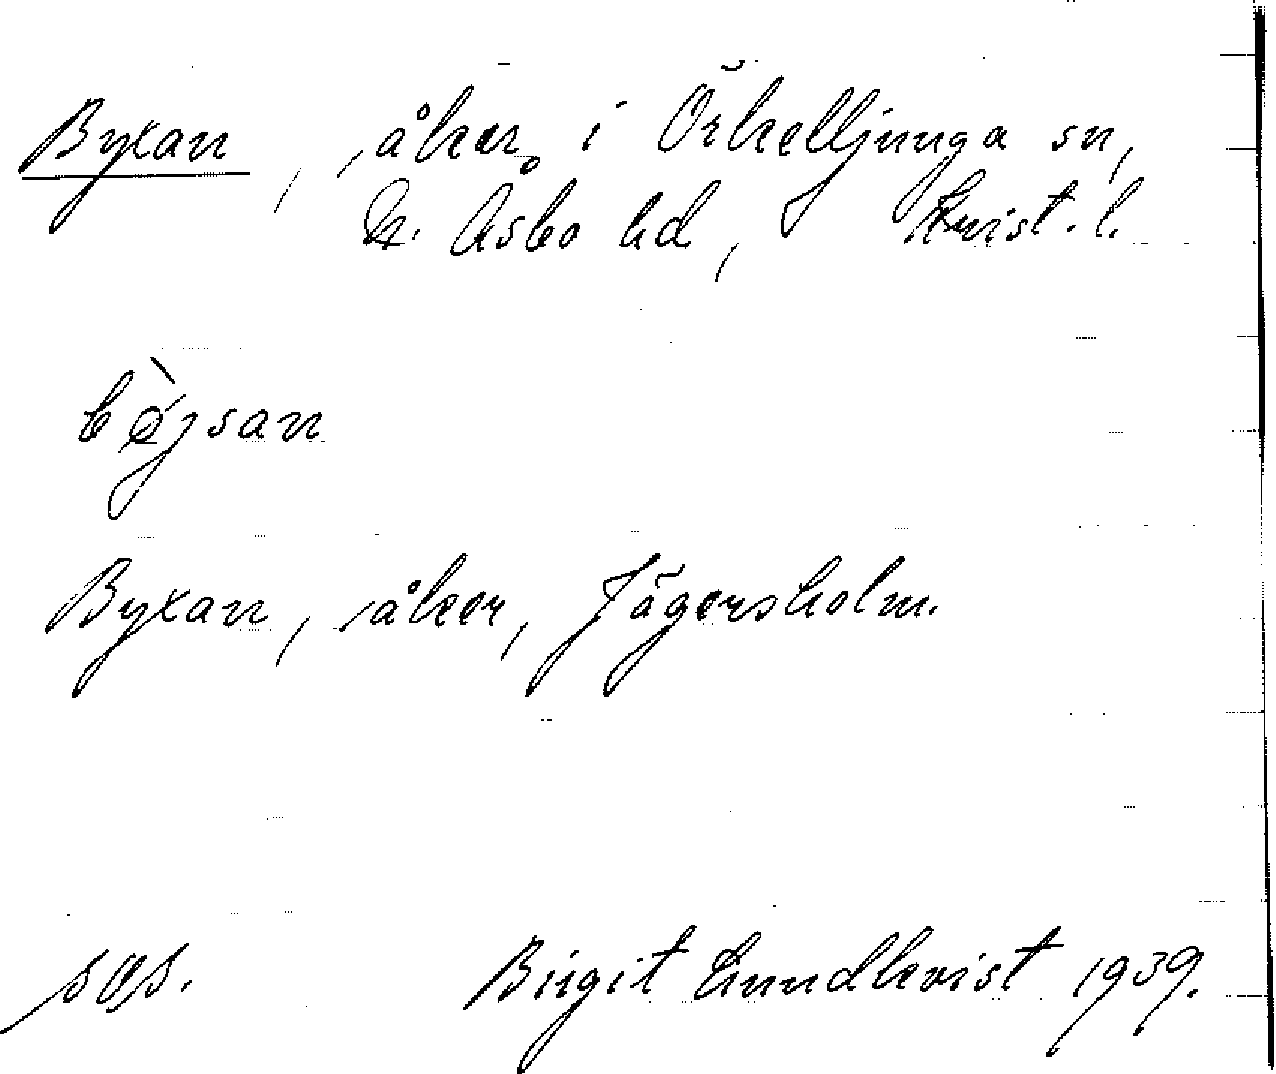 Byxan, åker i Örkelljunga sn,
N. Åsbo hd, Krist. l.
bø̀jsan
Byxan, åker, Jägersholm.
sås. Birgit Lundkvist 1939.